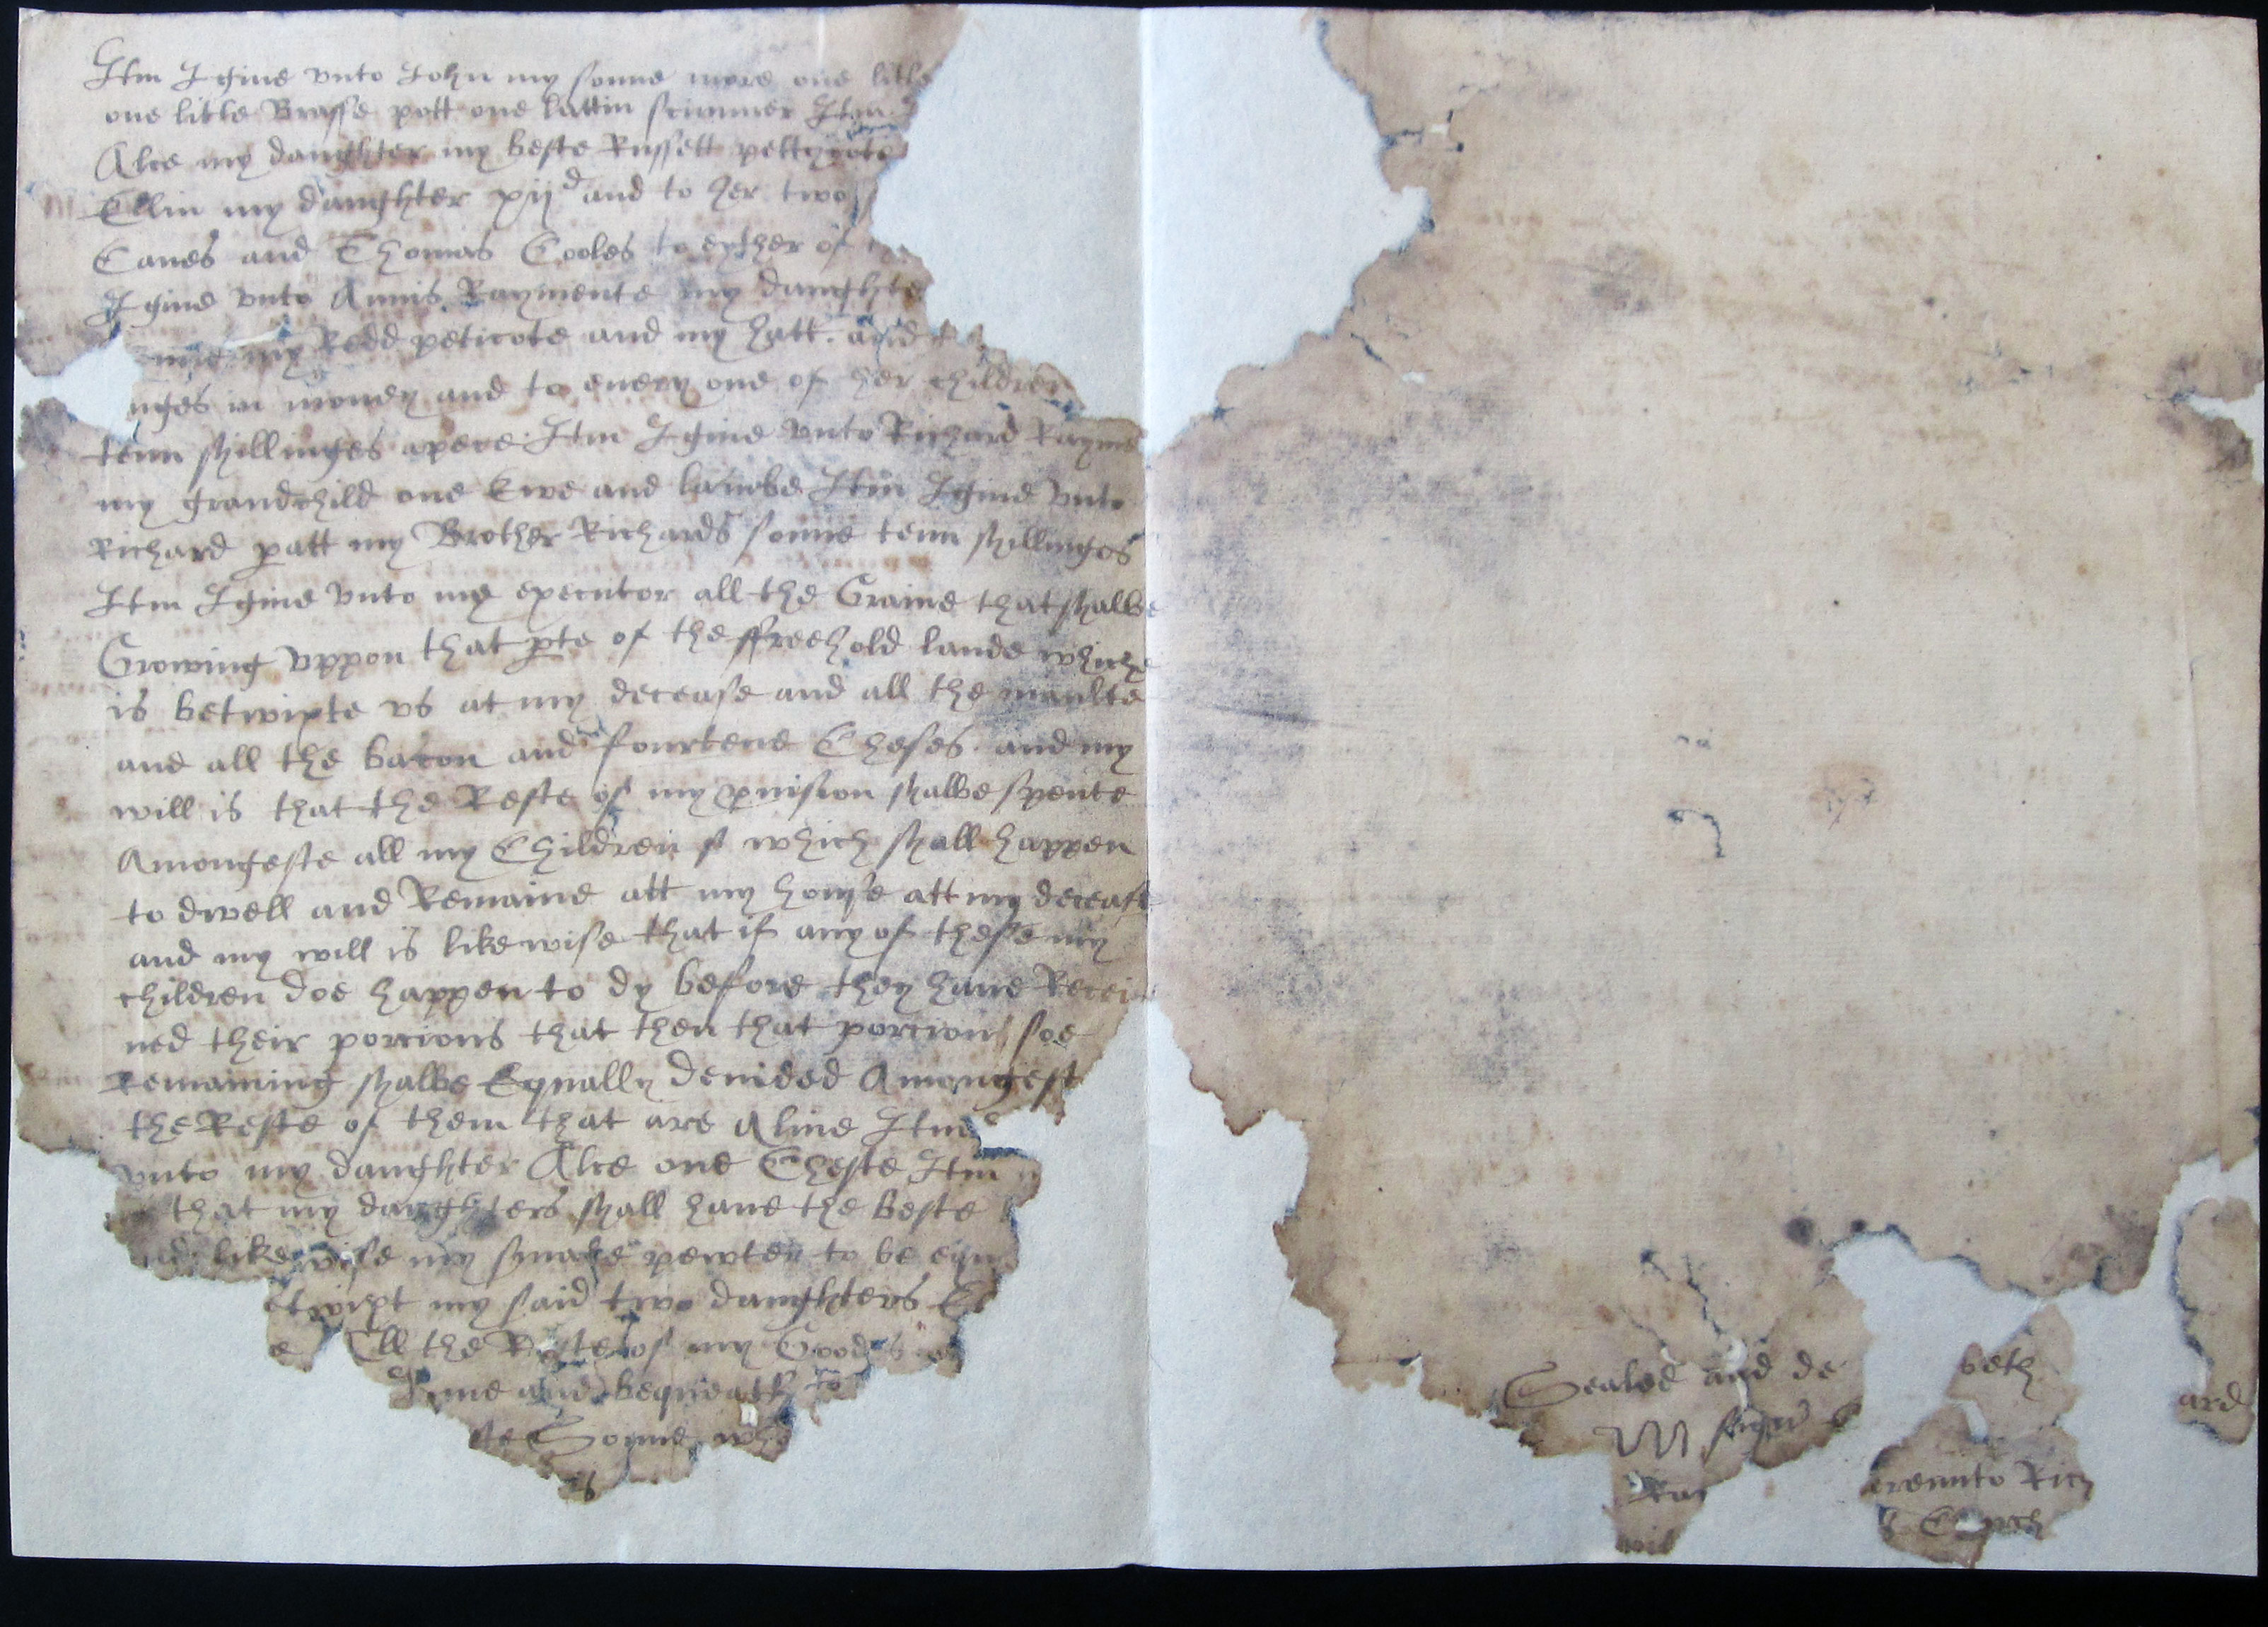 Itm I giue vnto John my sonne more one litle
one litle Brasse pott one lattin scimmer Itm I
Alce my daughter my beste Russett pettycote
Ellin my daughter xijd and to her two
Eanes and Thomas Cooles to eyther of
I giue vnto Annis Raymente my daughte
my Redd peticote and my hatt. and
nges in money and to euery one of her children
tenn shillinges apece Itm I giue vnto Richard Rayme
my grandchild one Ewe and lambe Itm I giue vnto
Richard patt my Brother Richards sonne tenn shillinges
Itm I giue vnto my executor all the Graine that shalbe
Growing vppon that pte of the ffreehold lande which
is betwixte vs at my decease and all the maulte
and all the bacon and fourtene Cheses and my
will is that the Reste of my pvision shalbe spente
Amongeste all my Children which shall happen
to dwell and Remaine att my howse att my decease
and my will is likewise that if any of these my
children doe happen to dy before they haue Recei
ued their porcions that then that porcion soe
Remaining shalbe Equally Deuided Amongest
the Reste of them that are Aliue Itm
vnto my daughter Alce one Cheste Itm
that my daughters shall haue the beste
likewise my smale pewter to be equ
twixt my said two daughters
e All the Reste of my Goodes
Giue and bequeath to
ste Sonne who
Sealed and de
signe
Rar
wit
beth
erevnto Rich
ard